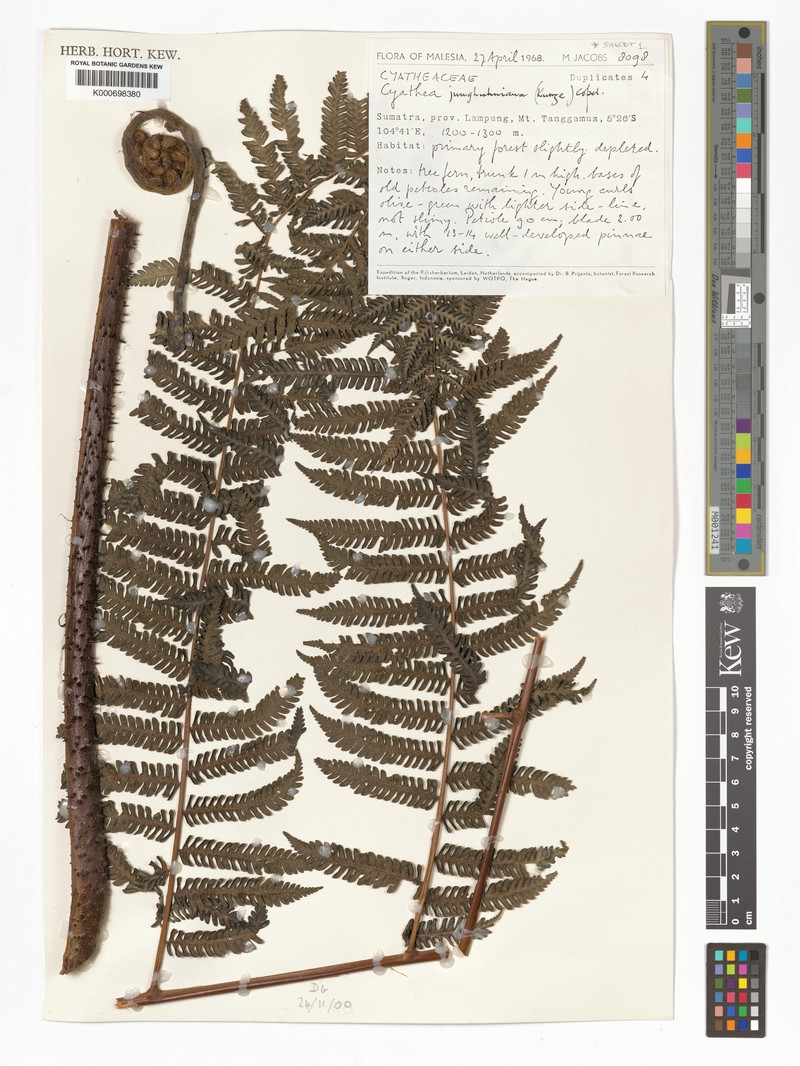 * SHEET 1
HERB. HORT. KEW.
ROYAL BOTANIC GARDENS KEW
K000698380
FLORA OF MALESIA, 27 April 1968. M. JACOBS 8098
CYATHEACEAE Duplicates 4
Cyathea junghuhniana (Kunze) Copel.
Sumatra, prov. Lampung, Mt. Tanggamus, 5°26'S
104°41'E, 1200-1300 m.
Habitat: primary forest slightly depleted.
Notes: tree fern, trunk 1 m high. bases of
old petioles remaining. Young curls
olive-green with lighter side-line,
not slimy. Petiole 90 cm, blade 2.00
m, with 13-14 well-developed pinnae
on either side.
Expedition of the Rijksherbarium, Leiden, Netherlands, accompanied by Dr. B. Prijanto, botanist, Forest Research
Institute, Bogor, Indonesia, sponsored by WOTRO, The Hague.
DG
24/11/00
inches
centimetres
M001241
Kew
copyright reserved
0 1 2 3 4 5 6 7 8 9 10
cm